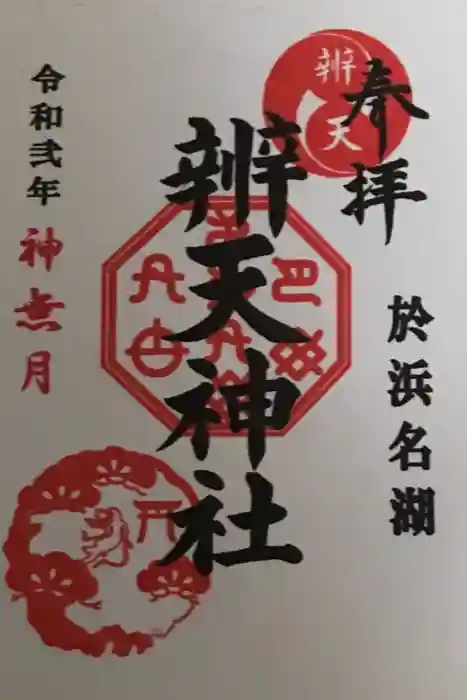 奉拝
辨天
於浜名湖
辨天神社
令和弐年
神無月